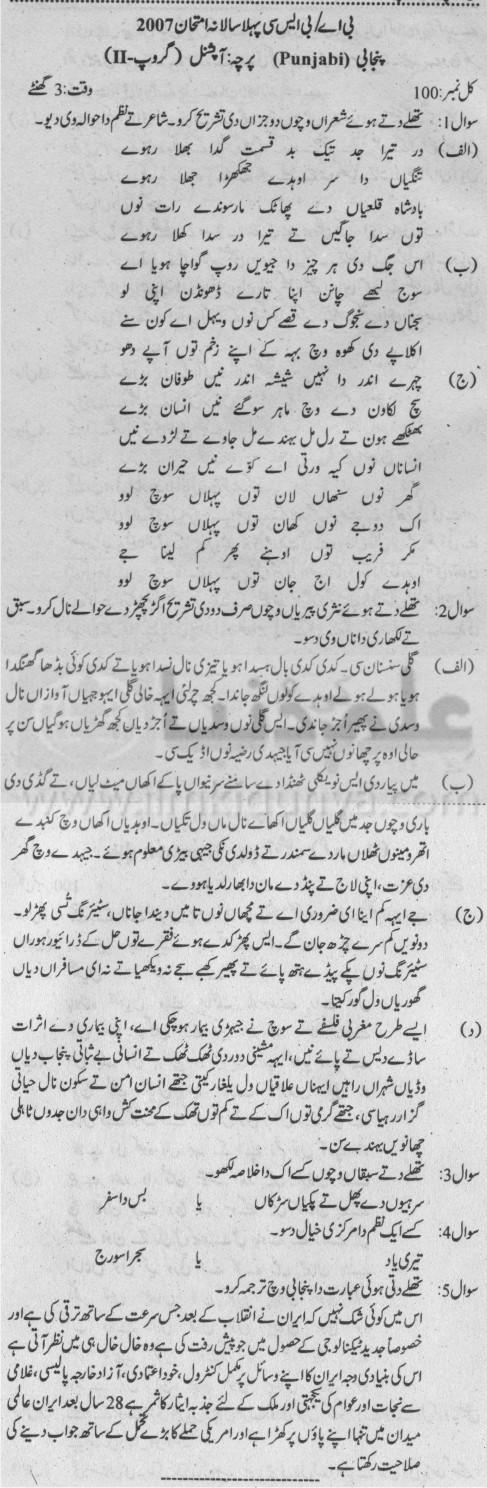 بی اے/بی ایس سی پہلا سالانہ امتحان 2007
پنجابی (Punjabi) پرچہ: آپشنل (گروپ-II)
کل نمبر: 100 وقت: 3 گھنٹے
سوال 1: تھلے دتے ہوئے شعراں وچوں دو جزاں دی تشریح کرو۔ شاعر تے نظم دا حوالہ وی دیو۔
(الف) در تیرا جد تیک بد قسمت گدا بھلا رہوے
تنگیاں دا سر اوہدے جھکھڑا جھلا رہوے
بادشاہ قلعیاں دے پھاٹک مار سوندے رات نوں
توں سدا جاگیں تے تیرا در سدا کھلا رہوے
(ب) اس جگ دی ہر چیز دا جیویں روپ گواچا ہویا اے
سوج لبھے چانن اپنا تارے ڈھونڈن اپنی لو
سجناں دے سنجوگ دے قصے کس نوں ویہل اے کون سنے
اکلاپے دی کھوہ وچ بہہ کے اپنے زخم توں آپے دھو
(ج) چہرے اندر دا نہیں شیشہ اندر نیں طوفان بڑے
سچ لکاون دے وچ ماہر سو گئے نیں انسان بڑے
بھکھے ہون تے رل مل بہندے مل جاوے تے لڑدے نیں
انساناں نوں کیہ ورتی اے کوّے نیں حیران بڑے
گھر نوں سنھاں لان توں پہلاں سوچ لوو
اک دوجے نوں کھان توں پہلاں سوچ لوو
مکر فریب توں اوہنے پھر کم لینا جے
اوہدے کول اج جان توں پہلاں سوچ لوو
سوال 2: تھلے دتے ہوئے نثری پیریاں وچوں صرف دو دی تشریح اگڑ پچھڑ دے حوالے نال کرو۔ سبق
تے لکھاری دا ناں وی دسو۔
(الف) گلی سنسان سی۔ کدی کدی بال ہسدا ہویا تیزی نال نسدا ہویا تے کدی کوئی بڈھا کھنگدا
ہویا ہولے ہولے اوہدے کولوں لنگھ جاندا۔ کجھ چر لئی ایہہ خالی گلی ایہو جہیاں آوازاں نال
وسدی نے پھیر اُجڑ جاندی۔ ایس گلی نوں وسدیاں تے اُجڑ دیاں کجھ گھڑیاں ہو گیاں سن پر
حالی اوہ پرچھانواں نہیں سی آیا جیہدی رضیہ نوں اڈیک سی۔
(ب) میں پیار دی ایس نویکلی ٹھنڈ اوے سامنے سر نیواں پا کے اکھاں میٹ لیاں، تے گڈی دی
باری وچوں جد میں گلیاں گلیاں اکھاے نال ماں ول تکیاں۔ اوہدیاں اکھاں وچ کنبدے
اتھرو مینوں ٹھلاں ماردے سمندر تے ڈولدی نکی جیہی بیڑی معلوم ہوئے۔ جیہدے وچ گھر
دی عزت، اپنی لاج تے پنڈ دے مان دا بھار لدیا ہووے۔
(ج) جے ایہہ کم اینا ای ضروری اے تے مچھاں نوں تا میں ویندا جاناں، سٹیئرنگ تُسی پھڑ لو۔
دونویں کم سرے چڑھ جان گے۔ ایس پھڑ کدے ہوئے فقرے توں حل کے ڈرائیور ہوراں
سٹیئرنگ نوں پکے پیڈے ہتھ پائے تے پھیر کھبے سجے نہ ویکھیا تے نہ ای مسافراں دیاں
گھوریاں ول گور کیتا۔
(د) ایسے طرح مغربی فلسفے تے سوچ نے جیہڑی بیمار ہو چکی اے، اپنی بیماری دے اثرات
ساڈے دیس تے پائے نیں، ایہہ مشینی دور دی ٹھک ٹھک تے انسانی بے ثباتی پنجاب دیاں
وڈیاں شہراں راہیں ایہناں علاقیاں ول یلغار کیتی جتھے انسان امن تے سکون نال حیاتی
گزار رہیا سی، جتھے گرمی توں اک کے تے کم توں تھک کے محنت کش واہی وان جدوں ٹاہلی
چھانویں بہندے سن۔
سوال 3: تھلے دتے سبقاں وچوں کسے اک دا خلاصہ لکھو۔
سرہیوں دے پھل تے پکیاں سڑکاں یا بس دا سفر
سوال 4: کسے ایک نظم دا مرکزی خیال دسو۔
تیری یاد یا سجرا سورج
سوال 5: تھلے دتی ہوئی عبارت دا پنجابی وچ ترجمہ کرو۔
اس میں کوئی شک نہیں کہ ایران نے انقلاب کے بعد جس سرعت کے ساتھ ترقی کی ہے اور
خصوصاً جدید ٹیکنالوجی کے حصول میں جو پیش رفت کی ہے وہ خال خال ہی میں نظر آتی ہے
اس کی بنیادی وجہ ایران کا اپنے وسائل پر مکمل کنٹرول، خود اعتمادی، آزاد خارجہ پالیسی، غلامی
سے نجات اور عوام کی یکجہتی اور ملک کے لئے جذبہ ایثار کا ثمر ہے 28 سال بعد ایران عالمی
میدان میں تنہا اپنے پاؤں پر کھڑا ہے اور امریکی حملے کا بڑے تحمل کے ساتھ جواب دینے کی
صلاحیت رکھتا ہے۔